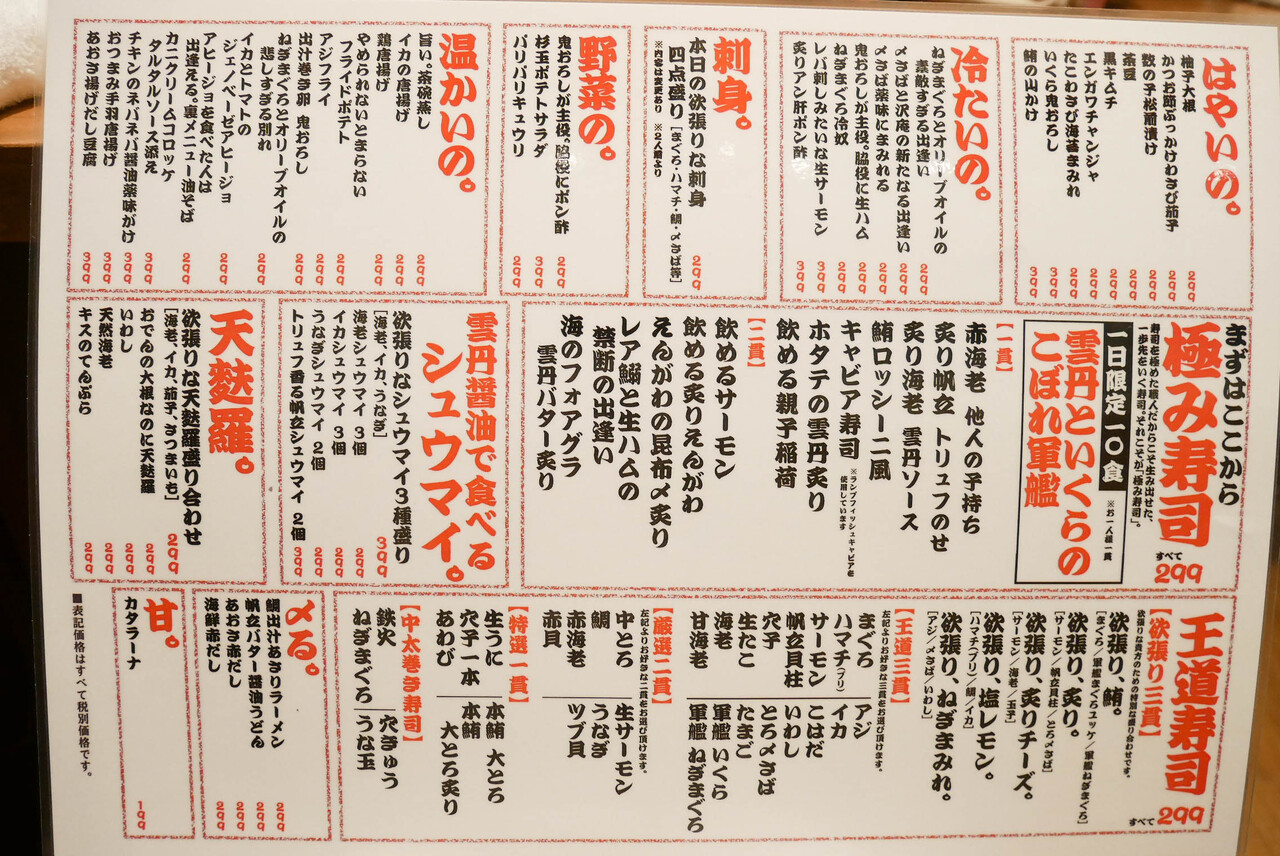 はやいの。
柚子大根 299
かつお節ぶっかけわさび茄子 299
数の子松前漬け 299
茶豆 299
黒キムチ 299
エンガワチャンジャ 299
たこわさび海苔まみれ 299
いくら鬼おろし 399
鮪の山かけ 399
冷たいの。
ねぎまぐろとオリーブオイルの
素敵すぎる出逢い 299
〆さばと沢庵の新たなる出逢い 299
〆さば薬味にまみれる 299
鬼おろしが主役。脇役に生ハム 299
ねぎまぐろ冷奴 299
レバ刺しみたいな生サーモン 399
炙りアン肝ポン酢 399
刺身。
本日の欲張りな刺身
四点盛り[まぐろ・ハマチ・鯛・〆さば等] 299
※内容は変更あり ※2人前より
野菜の。
鬼おろしが主役。脇役にポン酢 299
杉玉ポテトサラダ 399
バリバリキュウリ 299
温かいの。
旨い。茶碗蒸し 299
イカの唐揚げ 299
鶏唐揚げ 299
やめられないとまらない
フライドポテト 299
アジフライ 299
出汁巻き卵 鬼おろし 299
ねぎまぐろとオリーブオイルの
悲しすぎる別れ 299
イカとトマトの
ジェノベーゼアヒージョ 299
アヒージョを食べた人は
出逢える。裏メニュー油そば 299
カニクリームコロッケ
タルタルソース添え 399
チキンのネバネバ醤油薬味がけ 399
おつまみ手羽唐揚げ 399
あおさ揚げだし豆腐 399
まずはここから
極み寿司 すべて 299
寿司を極めた職人だからこそ生み出せた、
一歩先をいく寿司。それこそが「極み寿司」。
一日限定一〇食 ※お一人様一貫
雲丹といくらの
こぼれ軍艦
【一貫】
赤海老 他人の子持ち
炙り帆立 トリュフのせ
炙り海老 雲丹ソース
鮪ロッシーニ風
キャビア寿司 ※ランプフィッシュキャビアを
使用しています
ホタテの雲丹炙り
飲める親子稲荷
【二貫】
飲めるサーモン
飲める炙りえんがわ
えんがわの昆布〆炙り
レア鰯と生ハムの
禁断の出逢い
海のフォアグラ
雲丹バター炙り
雲丹醤油で食べる
シュウマイ。
欲張りなシュウマイ3種盛り
[海老、イカ、うなぎ] 399
海老シュウマイ 3個 299
イカシュウマイ 3個 299
うなぎシュウマイ 2個 299
トリュフ香る帆立シュウマイ 2個 399
天麩羅。
欲張りな天麩羅盛り合わせ
[海老、イカ、茄子、さつまいも] 299
おでんの大根なのに天麩羅 299
いわし 299
天然海老 299
キスのてんぷら 299
王道寿司 すべて 299
【欲張り三貫】
欲張りな貴方のための特別な盛り合わせです。
欲張り、鮪。
[まぐろ/軍艦まぐろユッケ/軍艦ねぎまぐろ]
欲張り、炙り。
[サーモン/帆立貝柱/とろ〆さば]
欲張り、炙りチーズ。
[サーモン/海老/玉子]
欲張り、塩レモン。
[ハマチ(ブリ)/鯛/イカ]
欲張り、ねぎまみれ。
[アジ/〆さば/いわし]
【王道三貫】
左記よりお好きな三貫をお選び頂けます。
まぐろ アジ
ハマチ(ブリ) イカ
サーモン こはだ
帆立貝柱 いわし
穴子 とろ〆さば
生たこ たまご
海老 軍艦 いくら
甘海老 軍艦 ねぎまぐろ
【厳選二貫】
左記よりお好きな二貫をお選び頂けます。
中とろ 生サーモン
鯛 うなぎ
赤海老 ツブ貝
赤貝
【特選一貫】
生うに 本鮪 大とろ
穴子一本 本鮪 大とろ炙り
あわび
【中太巻き寿司】
鉄火 穴きゅう
ねぎまぐろ うな玉
〆る。
鯛出汁あさりラーメン 299
帆立バター醤油うどん 299
あおさ赤だし 299
海鮮赤だし 299
甘。
カタラーナ 199
■表記価格はすべて税別価格です。